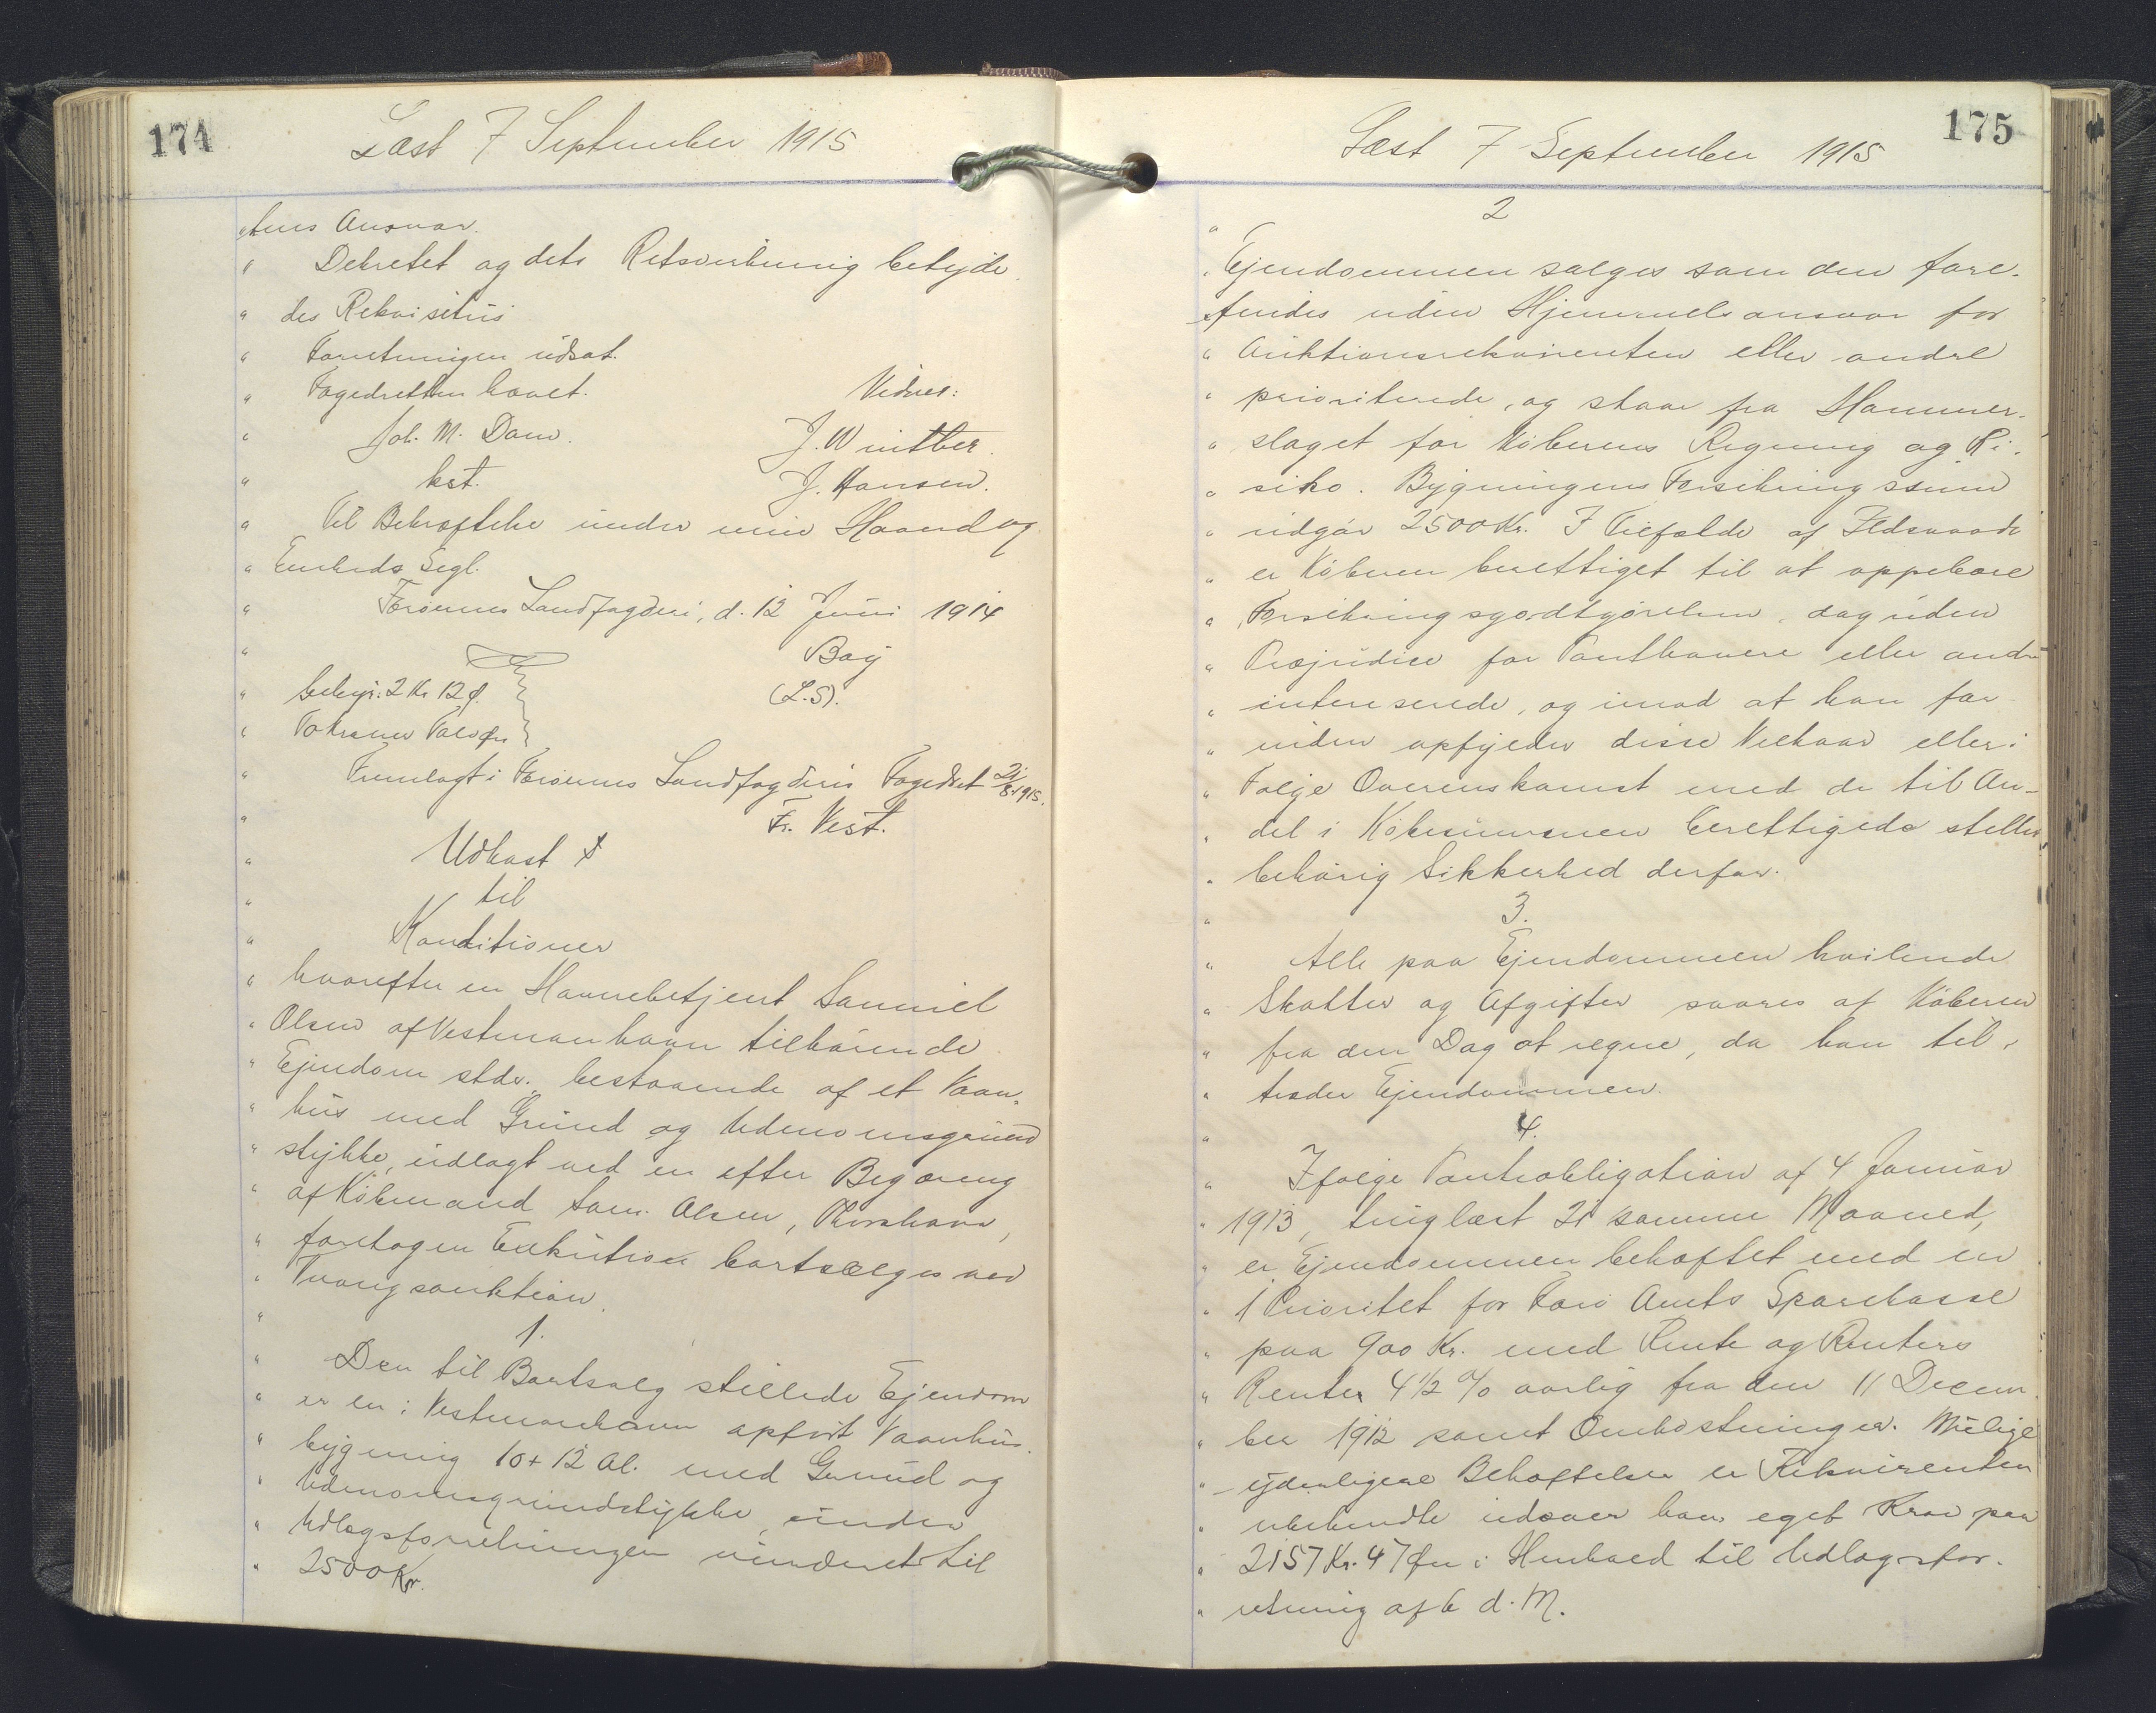 174
Læst 7 September 1915
tens Ansvar.
" Dekretet og dets Retsvirkning betyde
" des Rekvisitus
" Forretningen udsat.
" Fogedretten hævet. Vidner:
" Joh. M. Dam. J. Winther.
" kst. J. Hansen.
" Til Bekræftelse under min Haand og
" Embeds Segl.
" Færøernes Landfogderi, d. 12 Juni 1914
" Bay
" Gebyr: 2 Kr 12 Ø. (L.S).
" To Kroner Tolv Øre
" Fremlagt i Færøernes Landfogderis Fogedret 21/8 1915.
" Fr. Vest.
" Udkast
" til
" Konditioner
" hvorefter en Havnebetjent Samuel
" Olsen af Vestmanhavn tilhørende
" Ejendom stds. bestaaende af et Vaan-
" hus med Grund og Udenomsgrund
" stykke, udlagt ved en efter Begæring
" af Købmand Sam. Olsen, Thorshavn,
" foretagen Exekution bortsælges ved
" Tvangsauktion.
" 1.
" Den til Bortsalg stillede Ejendom
" er en i Vestmanhavn opført Vaanhus-
" bygning 10 + 12 Al. med Grund og
" Udenomsgrundstykke, under
" Udlægsforretningen vurderet til
" 2500 Kr.
175
Læst 7 September 1915
" 2
" Ejendommen sælges som den fore-
" findes uden Hjemmelsansvar for
" Auktionsrekvirenten eller andre
" prioriterede, og staar fra Hammer-
" slaget for Køberens Regning og Ri-
" siko. Bygningens Forsikringssum
" udgør 2500 Kr. I Tilfælde af Ildsvaade
" er Køberen berettiget til at oppebære
" Forsikringsgodtgørelsen, dog uden
" Præjudice for Panthavere eller andre
" interesserede, og imod at han for
" inden opfylder disse Vilkaar eller i
" Følge Overenskomst med de til An-
" del i Købesummen berettigede stiller
" behørig Sikkerhed derfor.
" 3.
" Alle paa Ejendommen hvilende
" Skatter og Afgifter svares af Køberen
" fra den Dag at regne, da han til-
" træder Ejendommen.
" 4.
" Ifølge Pantobligation af 4 Januar
" 1913, tinglæst 21 samme Maaned,
" er Ejendommen behæftet med en
" 1 Prioritet for Færø Amts Sparekasse
" paa 900 Kr. med Rente og Renters
" Rente 4 1/2 % aarlig fra den 11 Decem
" ber 1912 samt Omkostninger. Mulige
" yderligere Behæftelser er Rekvirenten
" ubekendte udover hans eget Krav paa
" 2157 Kr. 47 Øre i Henhold til Udlægsfor-
" retning af 6 d. M.